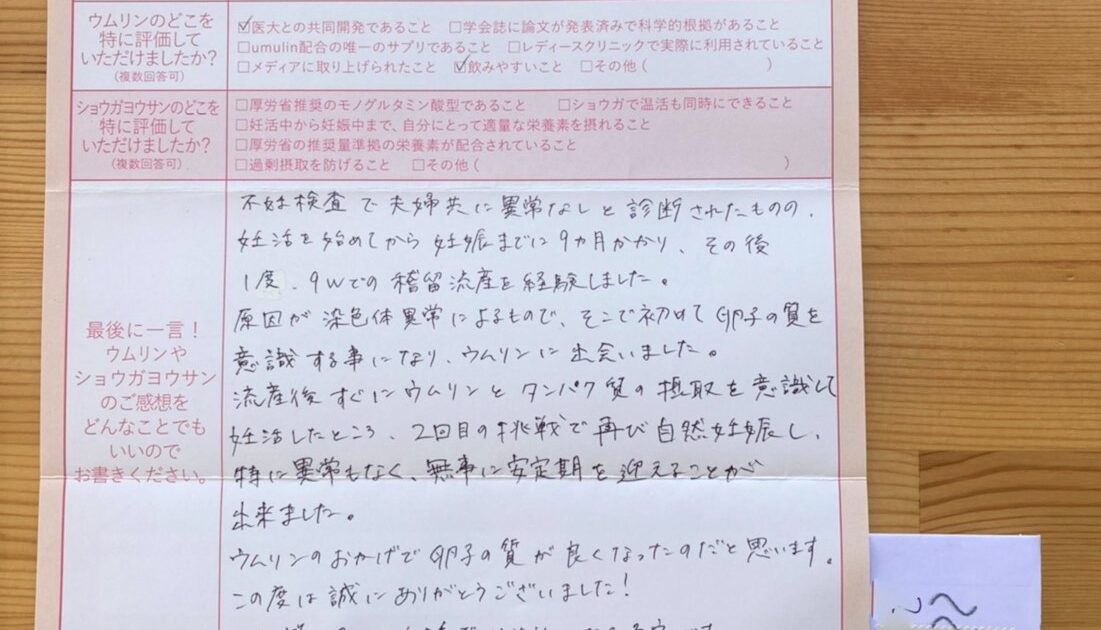 ウムリンのどこを
特に評価して
いただけましたか?
(複数回答可)
☑医大との共同開発であること □学会誌に論文が発表済みで科学的根拠があること
□umulin配合の唯一のサプリであること □レディースクリニックで実際に利用されていること
□メディアに取り上げられたこと ☑飲みやすいこと □その他 ( )
ショウガヨウサンのどこを
特に評価して
いただけましたか?
(複数回答可)
□厚労省推奨のモノグルタミン酸型であること □ショウガで温活も同時にできること
□妊活中から妊娠中まで、自分にとって適量な栄養素を摂れること
□厚労省の推奨量準拠の栄養素が配合されていること
□過剰摂取を防げること □その他 ( )
最後に一言!
ウムリンや
ショウガヨウサン
のご感想を
どんなことでも
いいので
お書きください。
不妊検査で夫婦共に異常なしと診断されたものの、
妊活を始めてから妊娠までに9カ月かかり、その後
1度、9wでの稽留流産を経験しました。
原因が染色体異常によるもので、そこで初めて卵子の質を
意識する事になり、ウムリンに出会いました。
流産後すぐにウムリンとタンパク質の摂取を意識して
妊活したところ、2回目の挑戦で再び自然妊娠し、
特に異常もなく、無事に安定期を迎えることが
出来ました。
ウムリンのおかげで卵子の質が良くなったのだと思います。
この度は誠にありがとうございました!